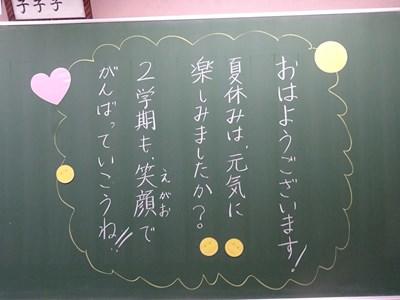 おはようございます!
夏休みは、元気に
楽しみましたか?
2学期も、笑顔で
えがお
がんばっていこうね!!
子子子